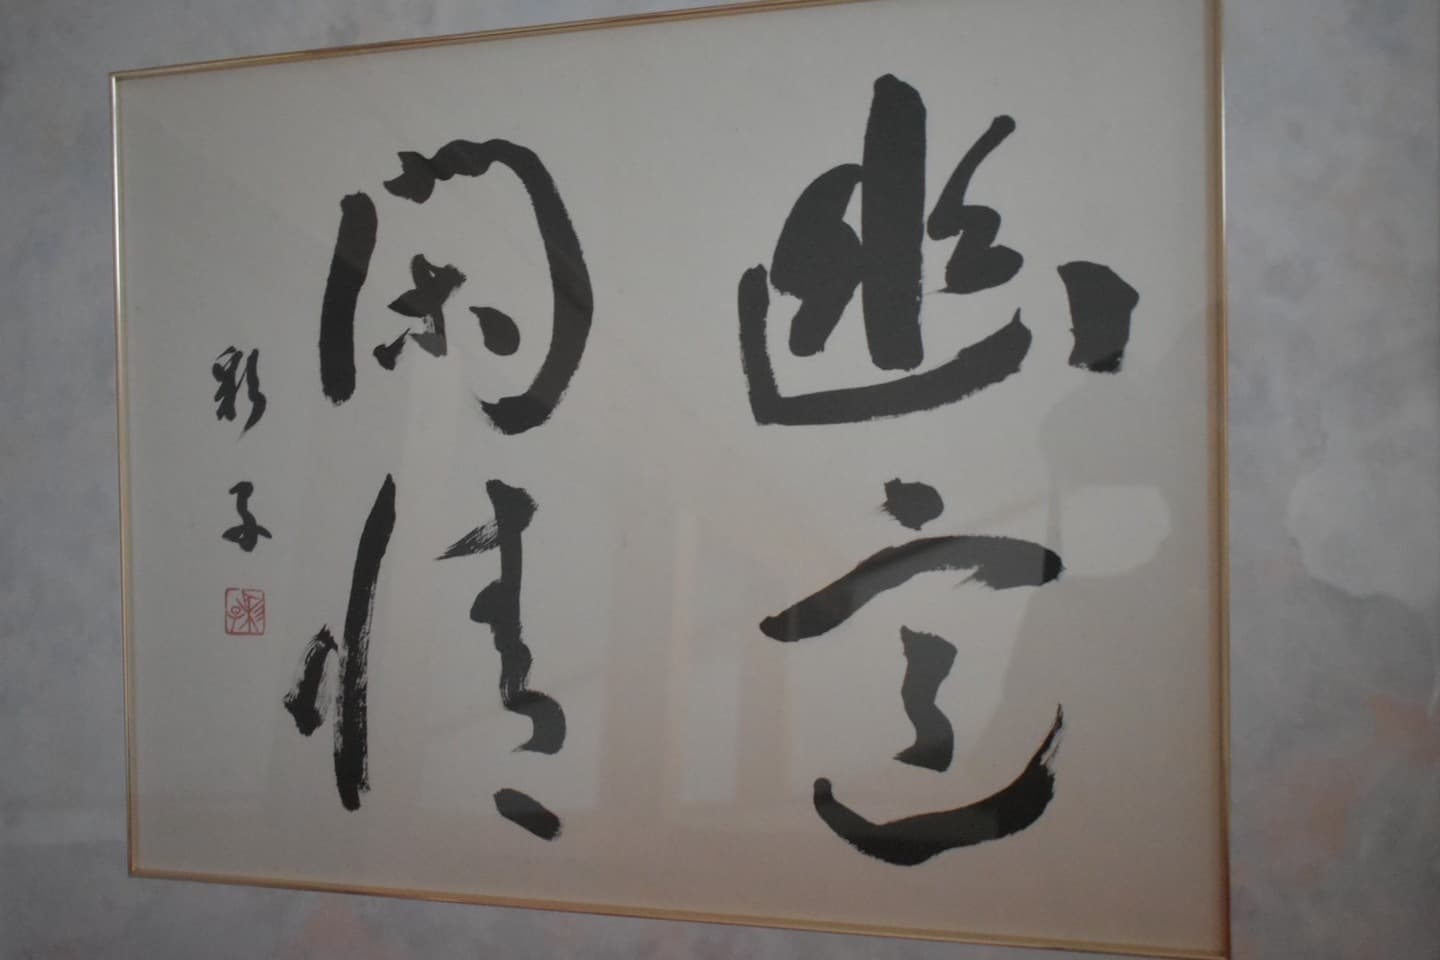 幽意
閑情
彩子